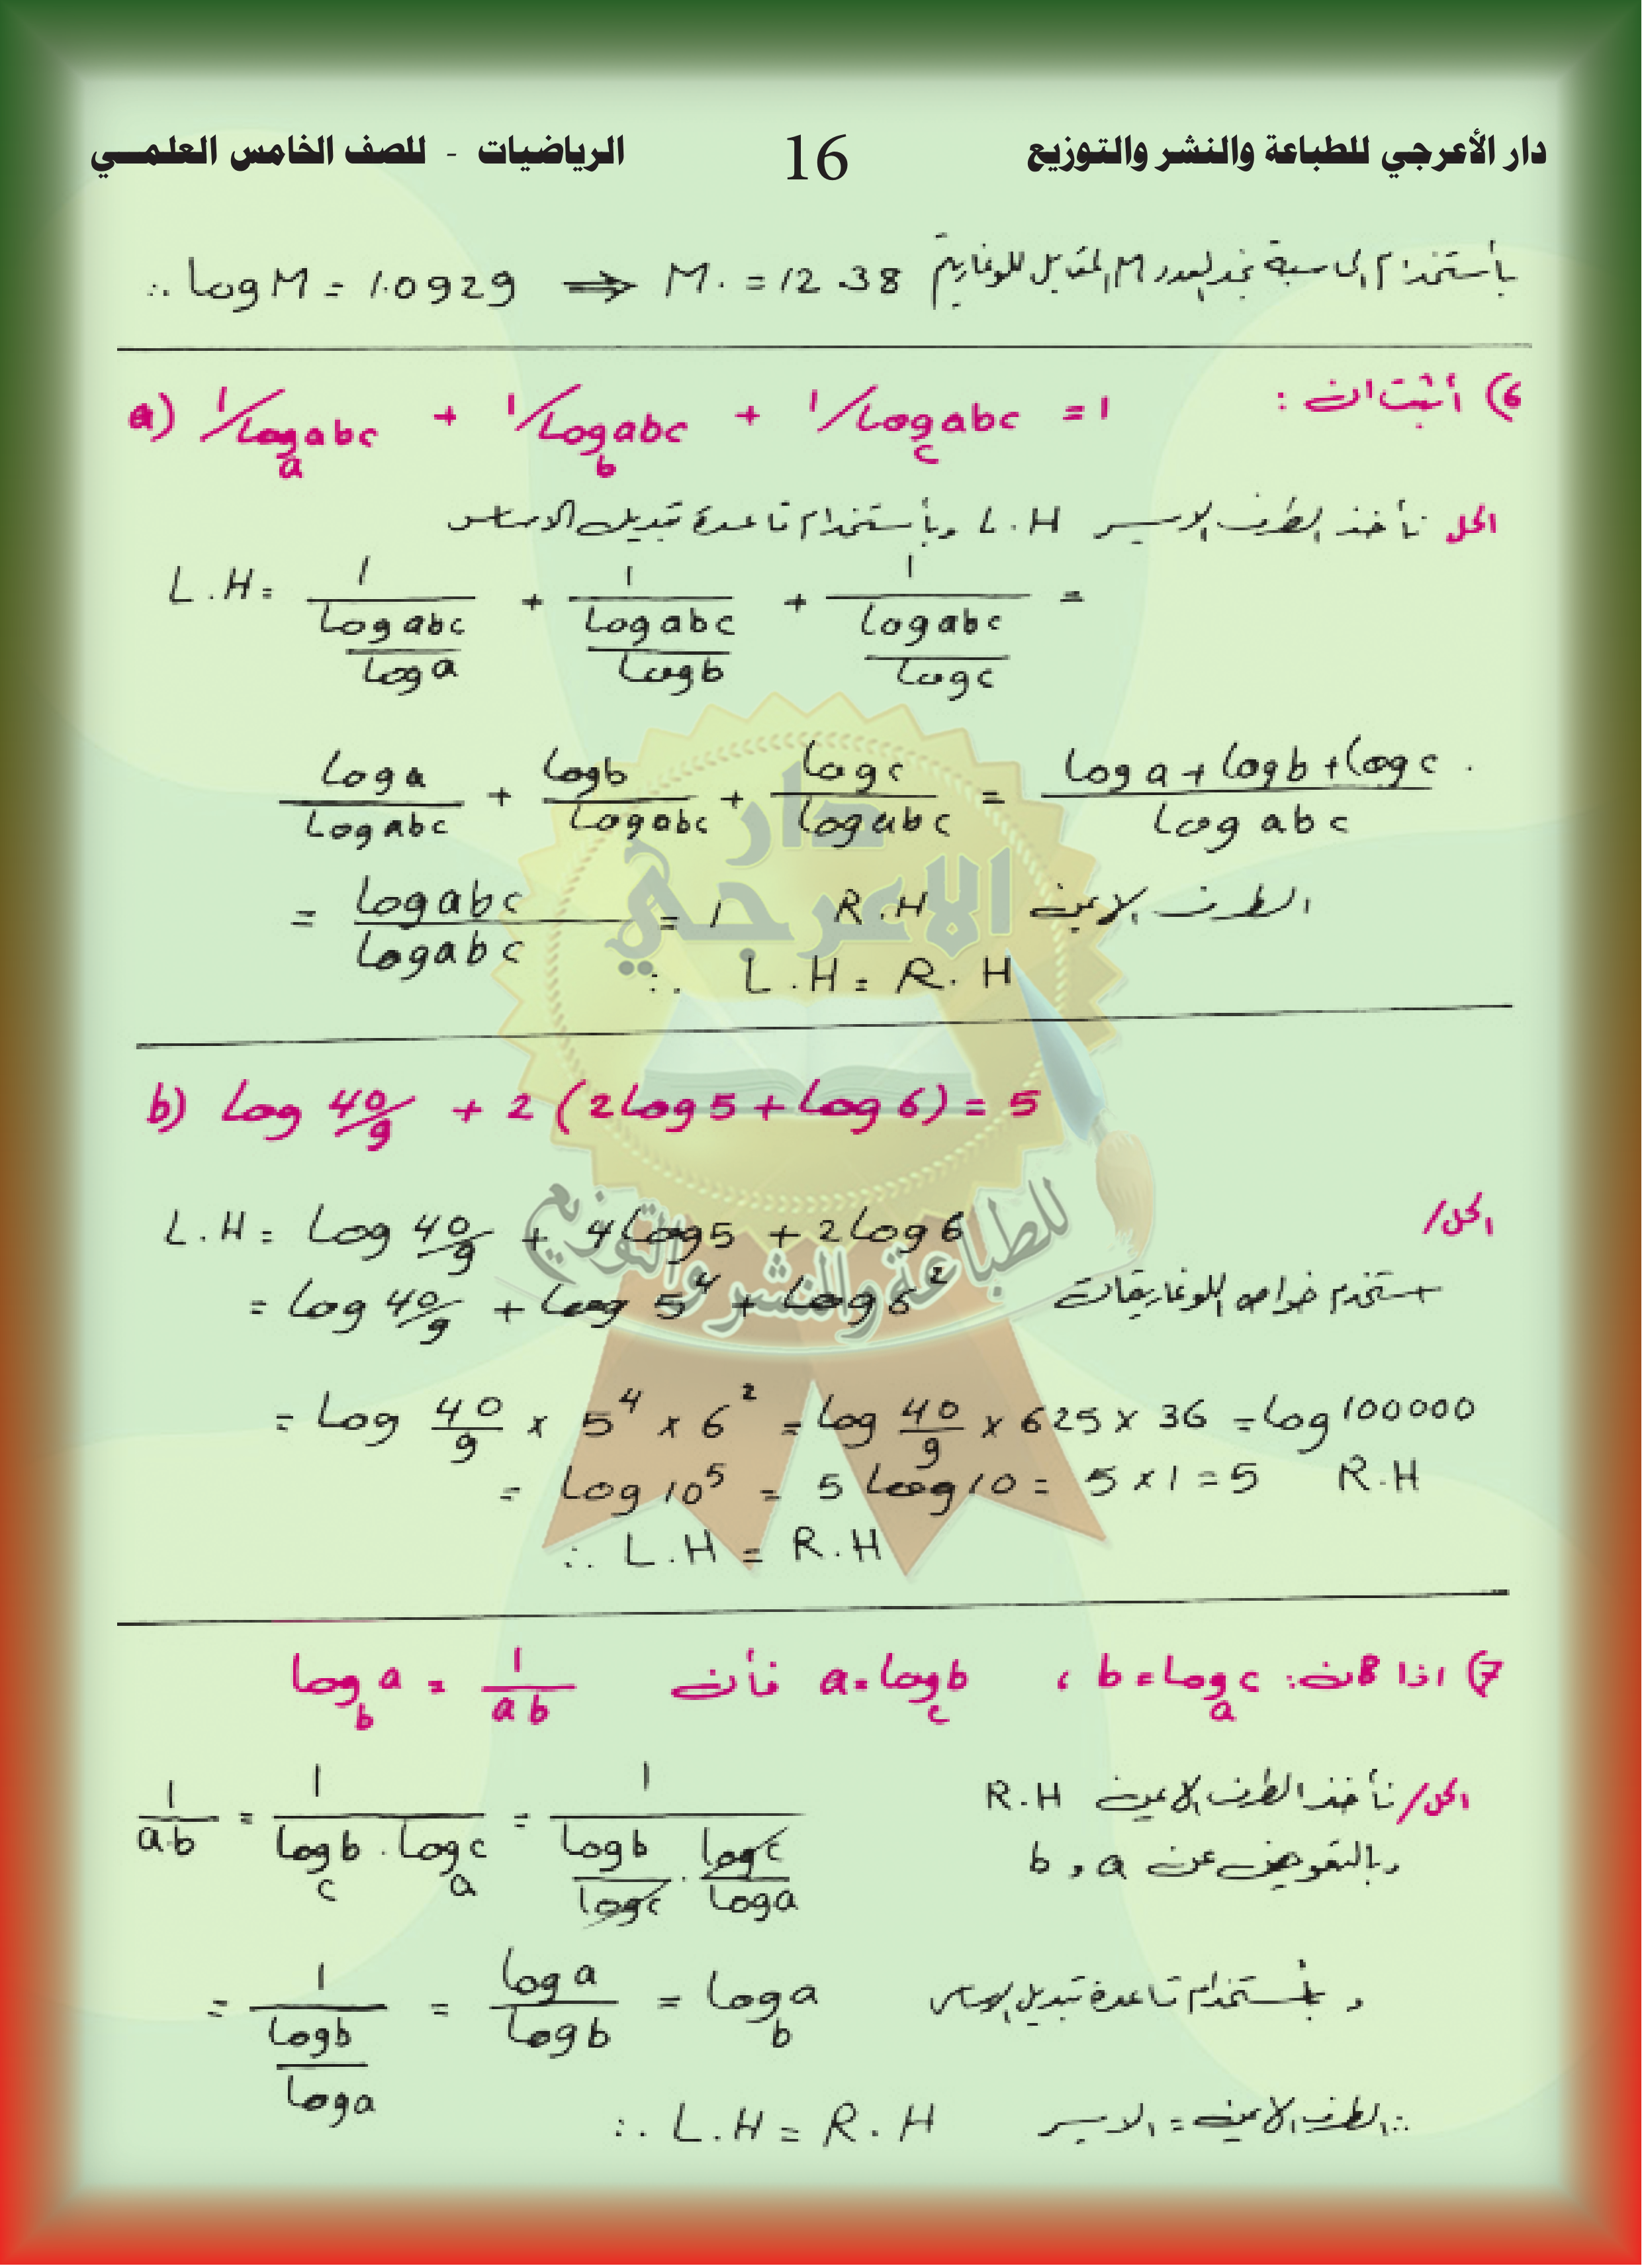 دار الأعرجي للطباعة والنشر والتوزيع 16 الرياضيات - للصف الخامس العلمي
بأستخدام الحاسبة نجد العدد M المقابل للوغاريتم
∴ log M = 1.0929 ⇒ M. = 12.38
6) أثبت ان :
a) 1/log_a abc + 1/log_b abc + 1/log_c abc = 1
الحل نأخذ الطرف الايسر L.H وبأستخدام قاعدة تبديل الاساس
L.H = 1/(log abc/log a) + 1/(log abc/log b) + 1/(log abc/log c) =
log a/log abc + log b/log abc + log c/log abc = (log a + log b + log c)/log abc
= log abc/log abc = 1 R.H الطرف الايمن
∴ L.H = R.H
b) log 40/9 + 2 (2 log 5 + log 6) = 5
الحل/
L.H = log 40/9 + 4 log 5 + 2 log 6
= log 40/9 + log 5⁴ + log 6² نستخدم خواص اللوغاريتمات
= log 40/9 × 5⁴ × 6² = log 40/9 × 625 × 36 = log 100000
= log 10⁵ = 5 log 10 = 5 × 1 = 5 R.H
∴ L.H = R.H
7) اذا كان: b = log_a c ، a = log_c b فأن log_b a = 1/ab
الحل/ نأخذ الطرف الايمن R.H
وبالتعويض عن a و b
1/a.b = 1/(log_c b . log_a c) = 1/(log b/log c . log c/log a)
وبأستخدام قاعدة تبديل الاساس
= 1/(log b/log a) = log a/log b = log_b a
∴ الطرف الايمن = الايسر ∴ L.H = R.H
دار
الاعرجي
للطباعة والنشر والتوزيع